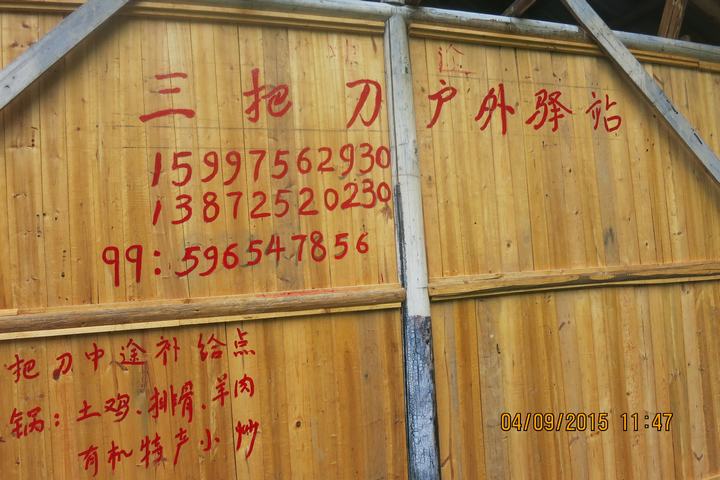 三把刀 户外驿站
15997562930
13872520230
99:596547856
把刀中途补给点
锅:土鸡.排骨.羊肉
有机特产小炒
04/09/2015 11:47